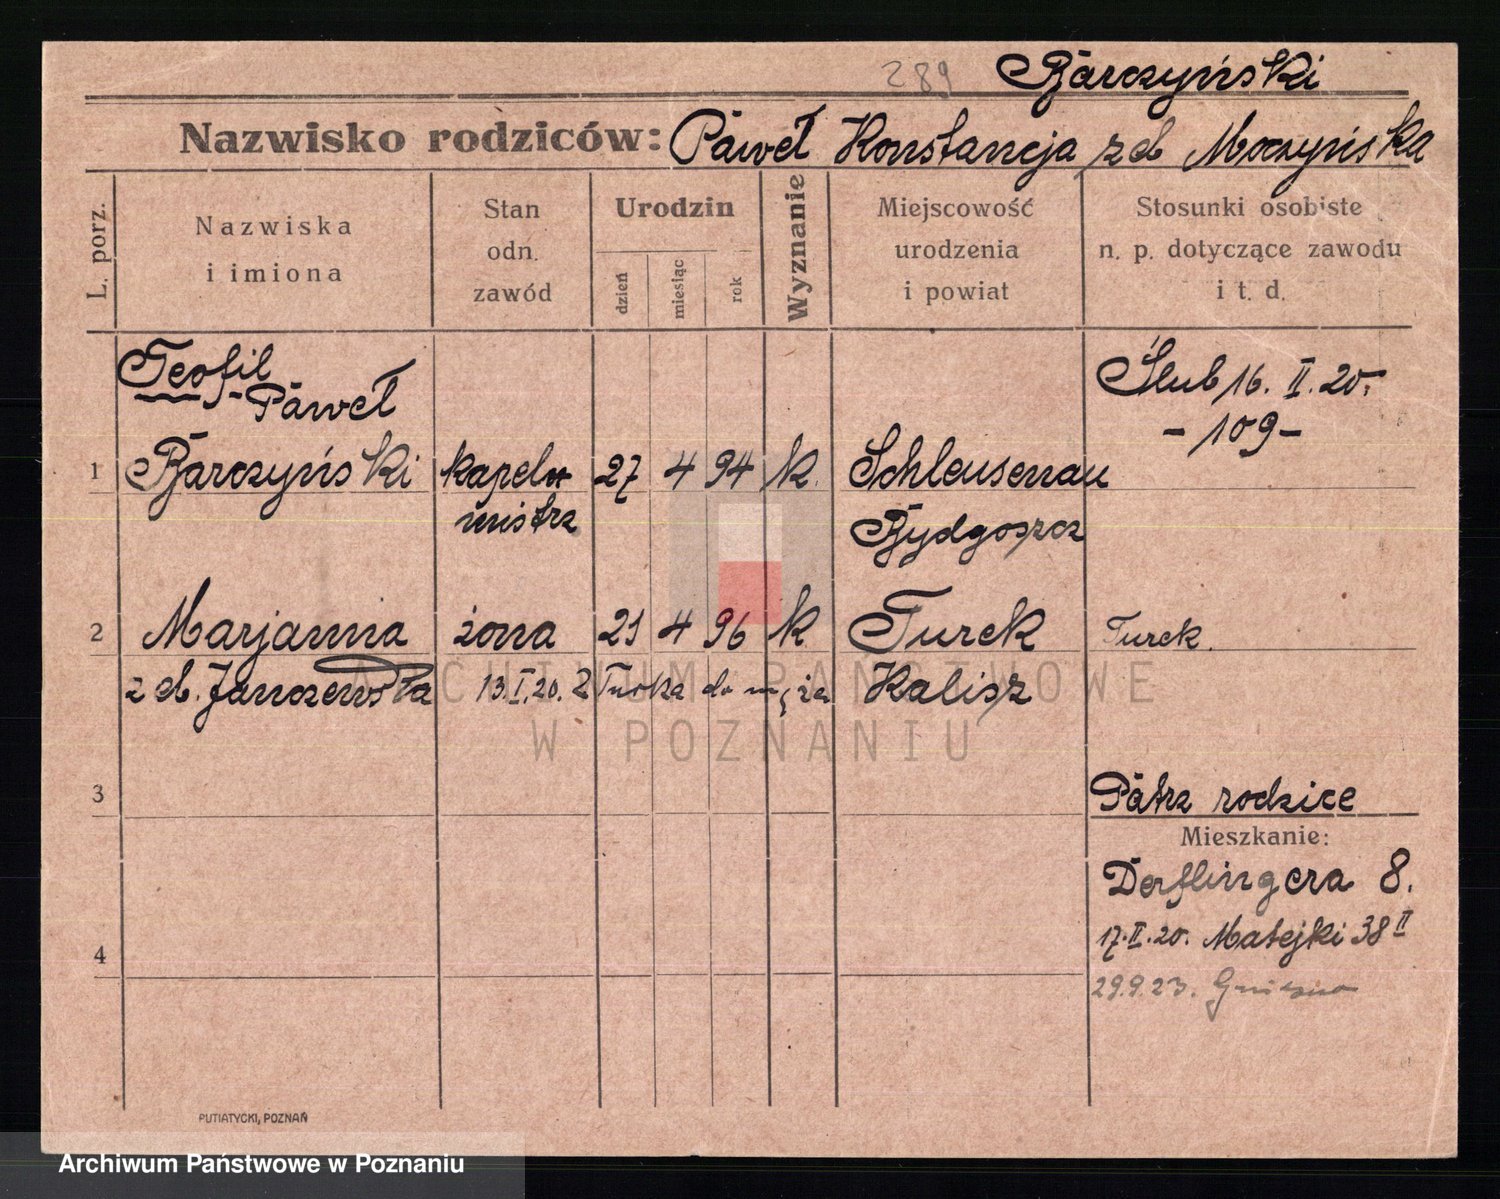 289 Barczyński
Nazwisko rodziców: Paweł Konstancja zd Moczyńska
L. porz.
Nazwiska
i imiona
Stan
odn.
zawód
Urodzin
dzień
miesiąc
rok
Wyznanie
Miejscowość
urodzenia
i powiat
Stosunki osobiste
n. p. dotyczące zawodu
i t. d.
Teofil
Paweł
Ślub 16. II. 20.
- 109 -
1 Barczyński kapel 27 4 94 k. Schleusenau
mistrz Bydgoszcz
2 Marjanna żona 21 4 96 k Turek Turek.
z d. Janczewska 13.I.20. Z Turka do męża Kalisz
ARCHIWUM PAŃSTWOWE
W POZNANIU
3 Patrz rodzice
Mieszkanie:
Derflingera 8.
17.II.20. Matejki 38 II
4
29.9.23. Gniezno
PUTIATYCKI, POZNAŃ
Archiwum Państwowe w Poznaniu